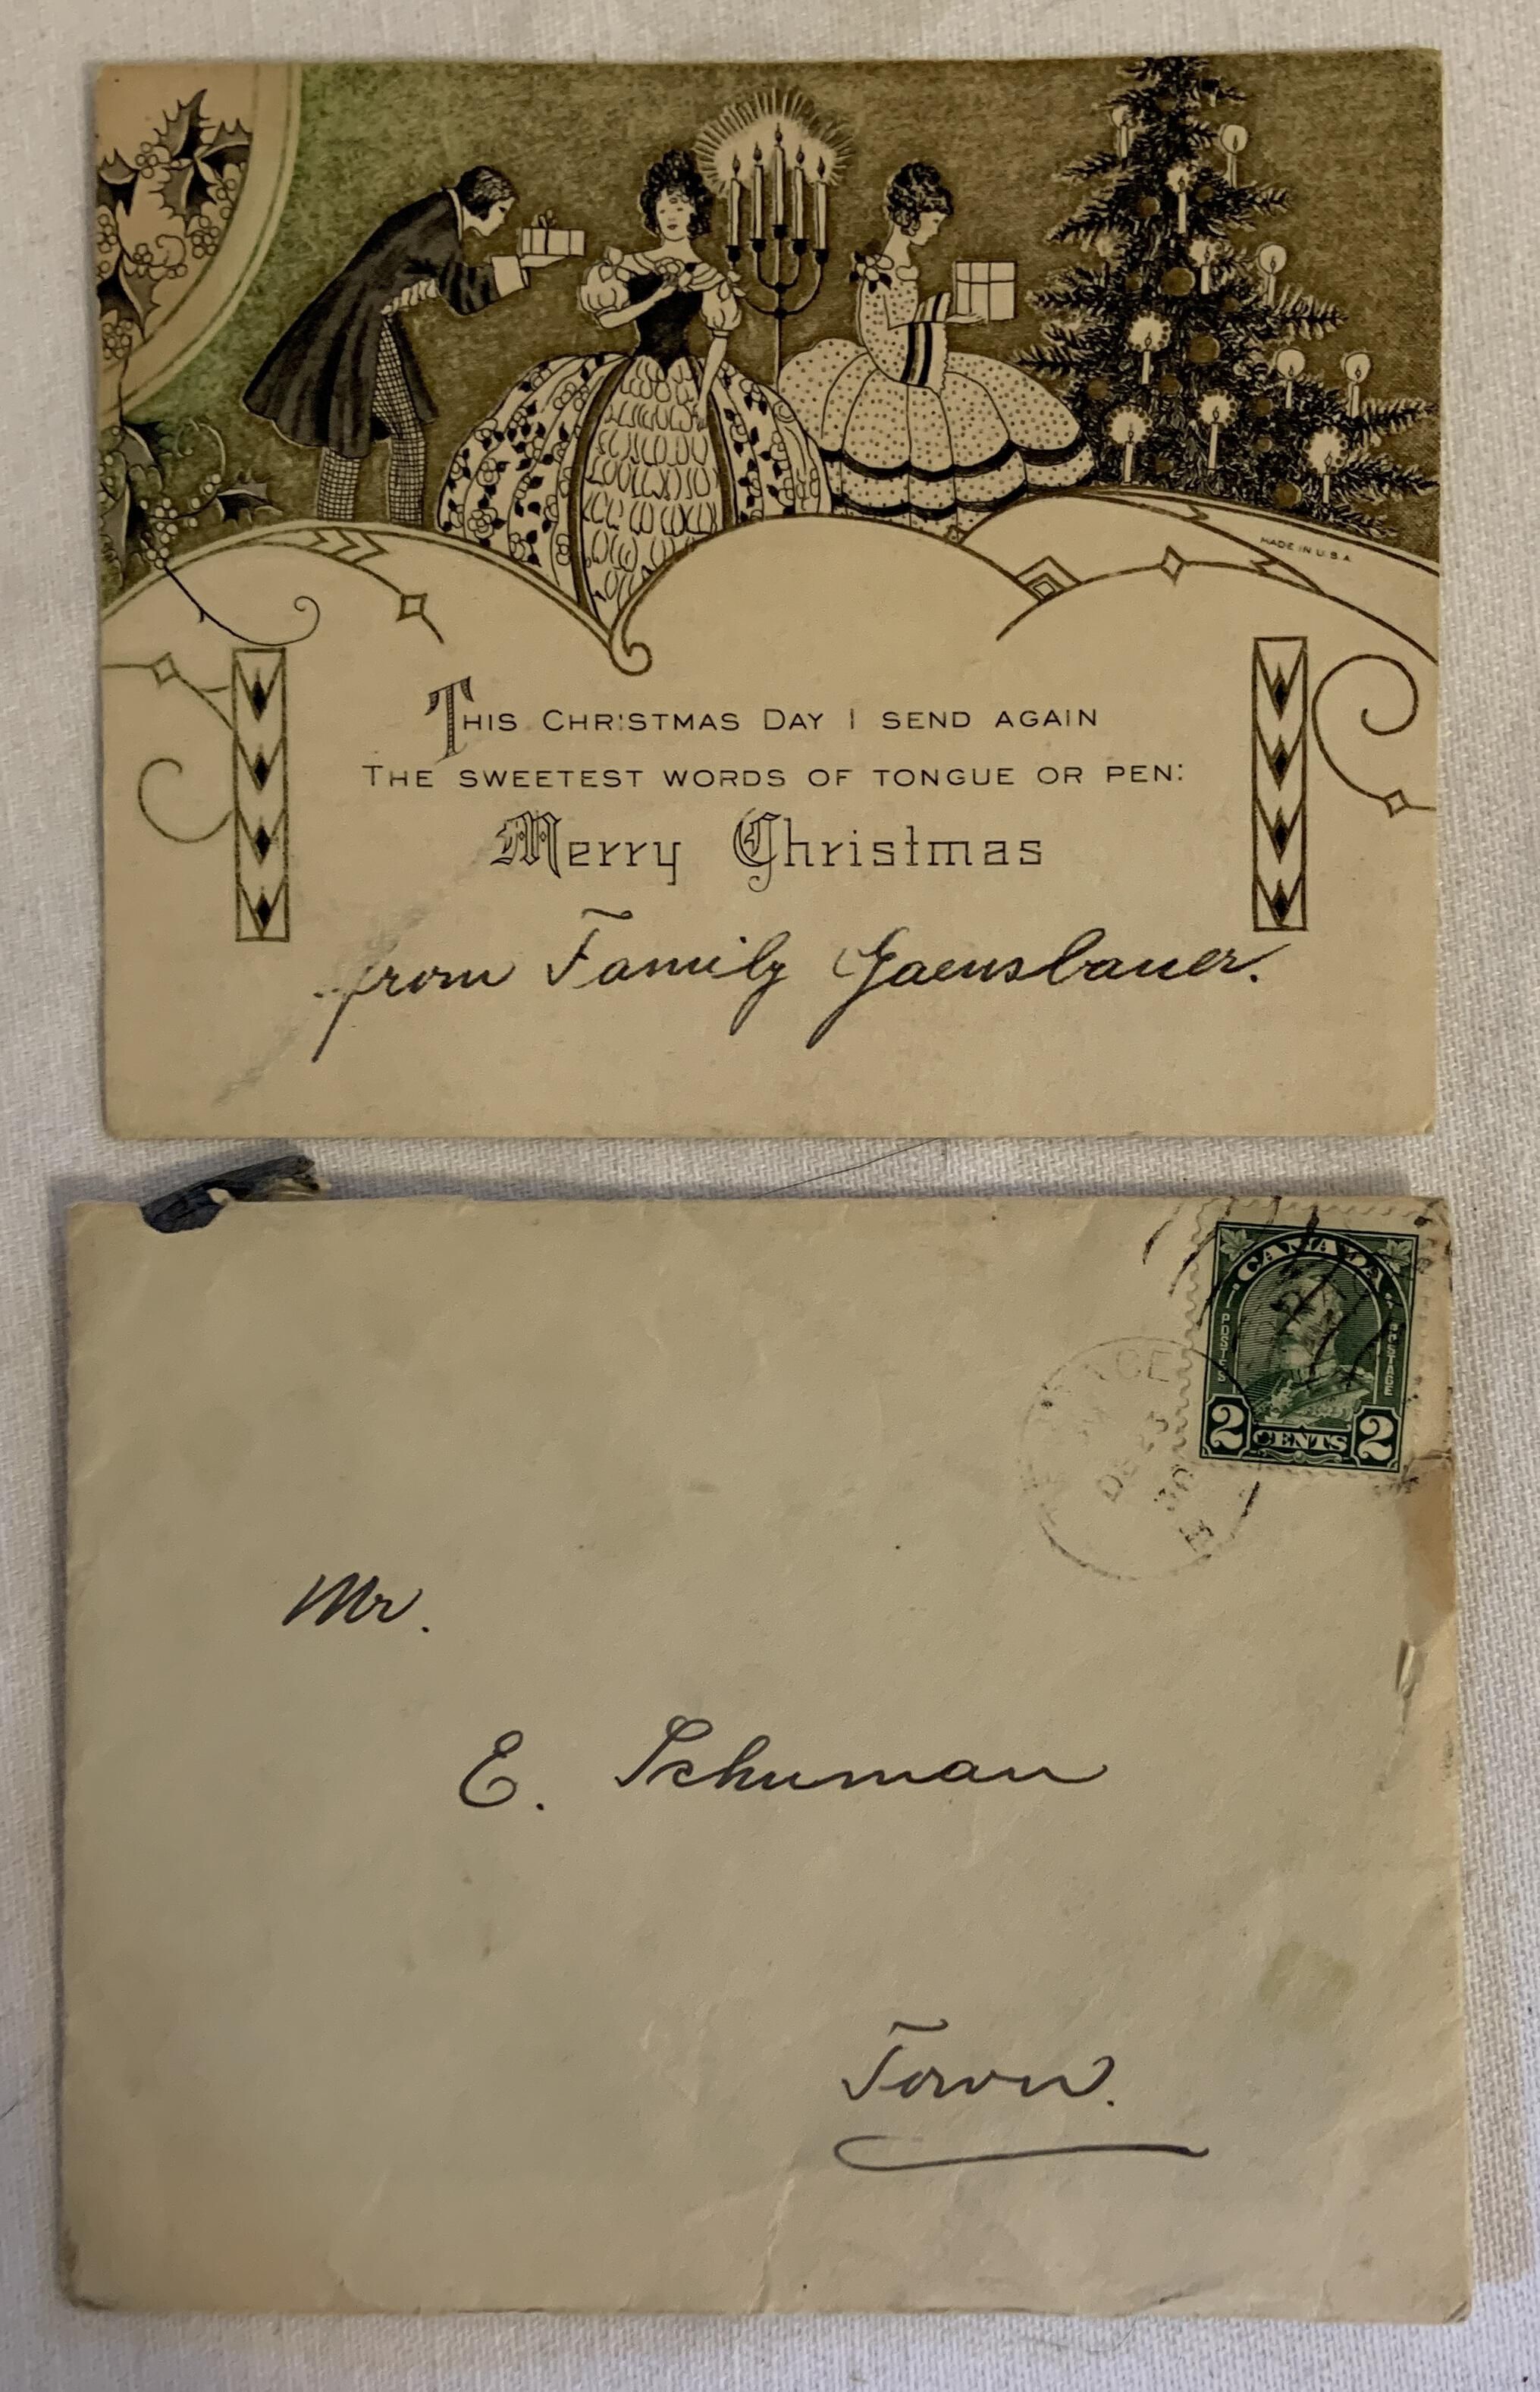 MADE IN U.S.A
THIS CHRISTMAS DAY I SEND AGAIN
THE SWEETEST WORDS OF TONGUE OR PEN:
Merry Christmas
from Family Gaensbauer.
CANADA
POSTES POSTAGE
2 CENTS 2
PM
DE 23
30
Mr.
E. Schuman
Town.